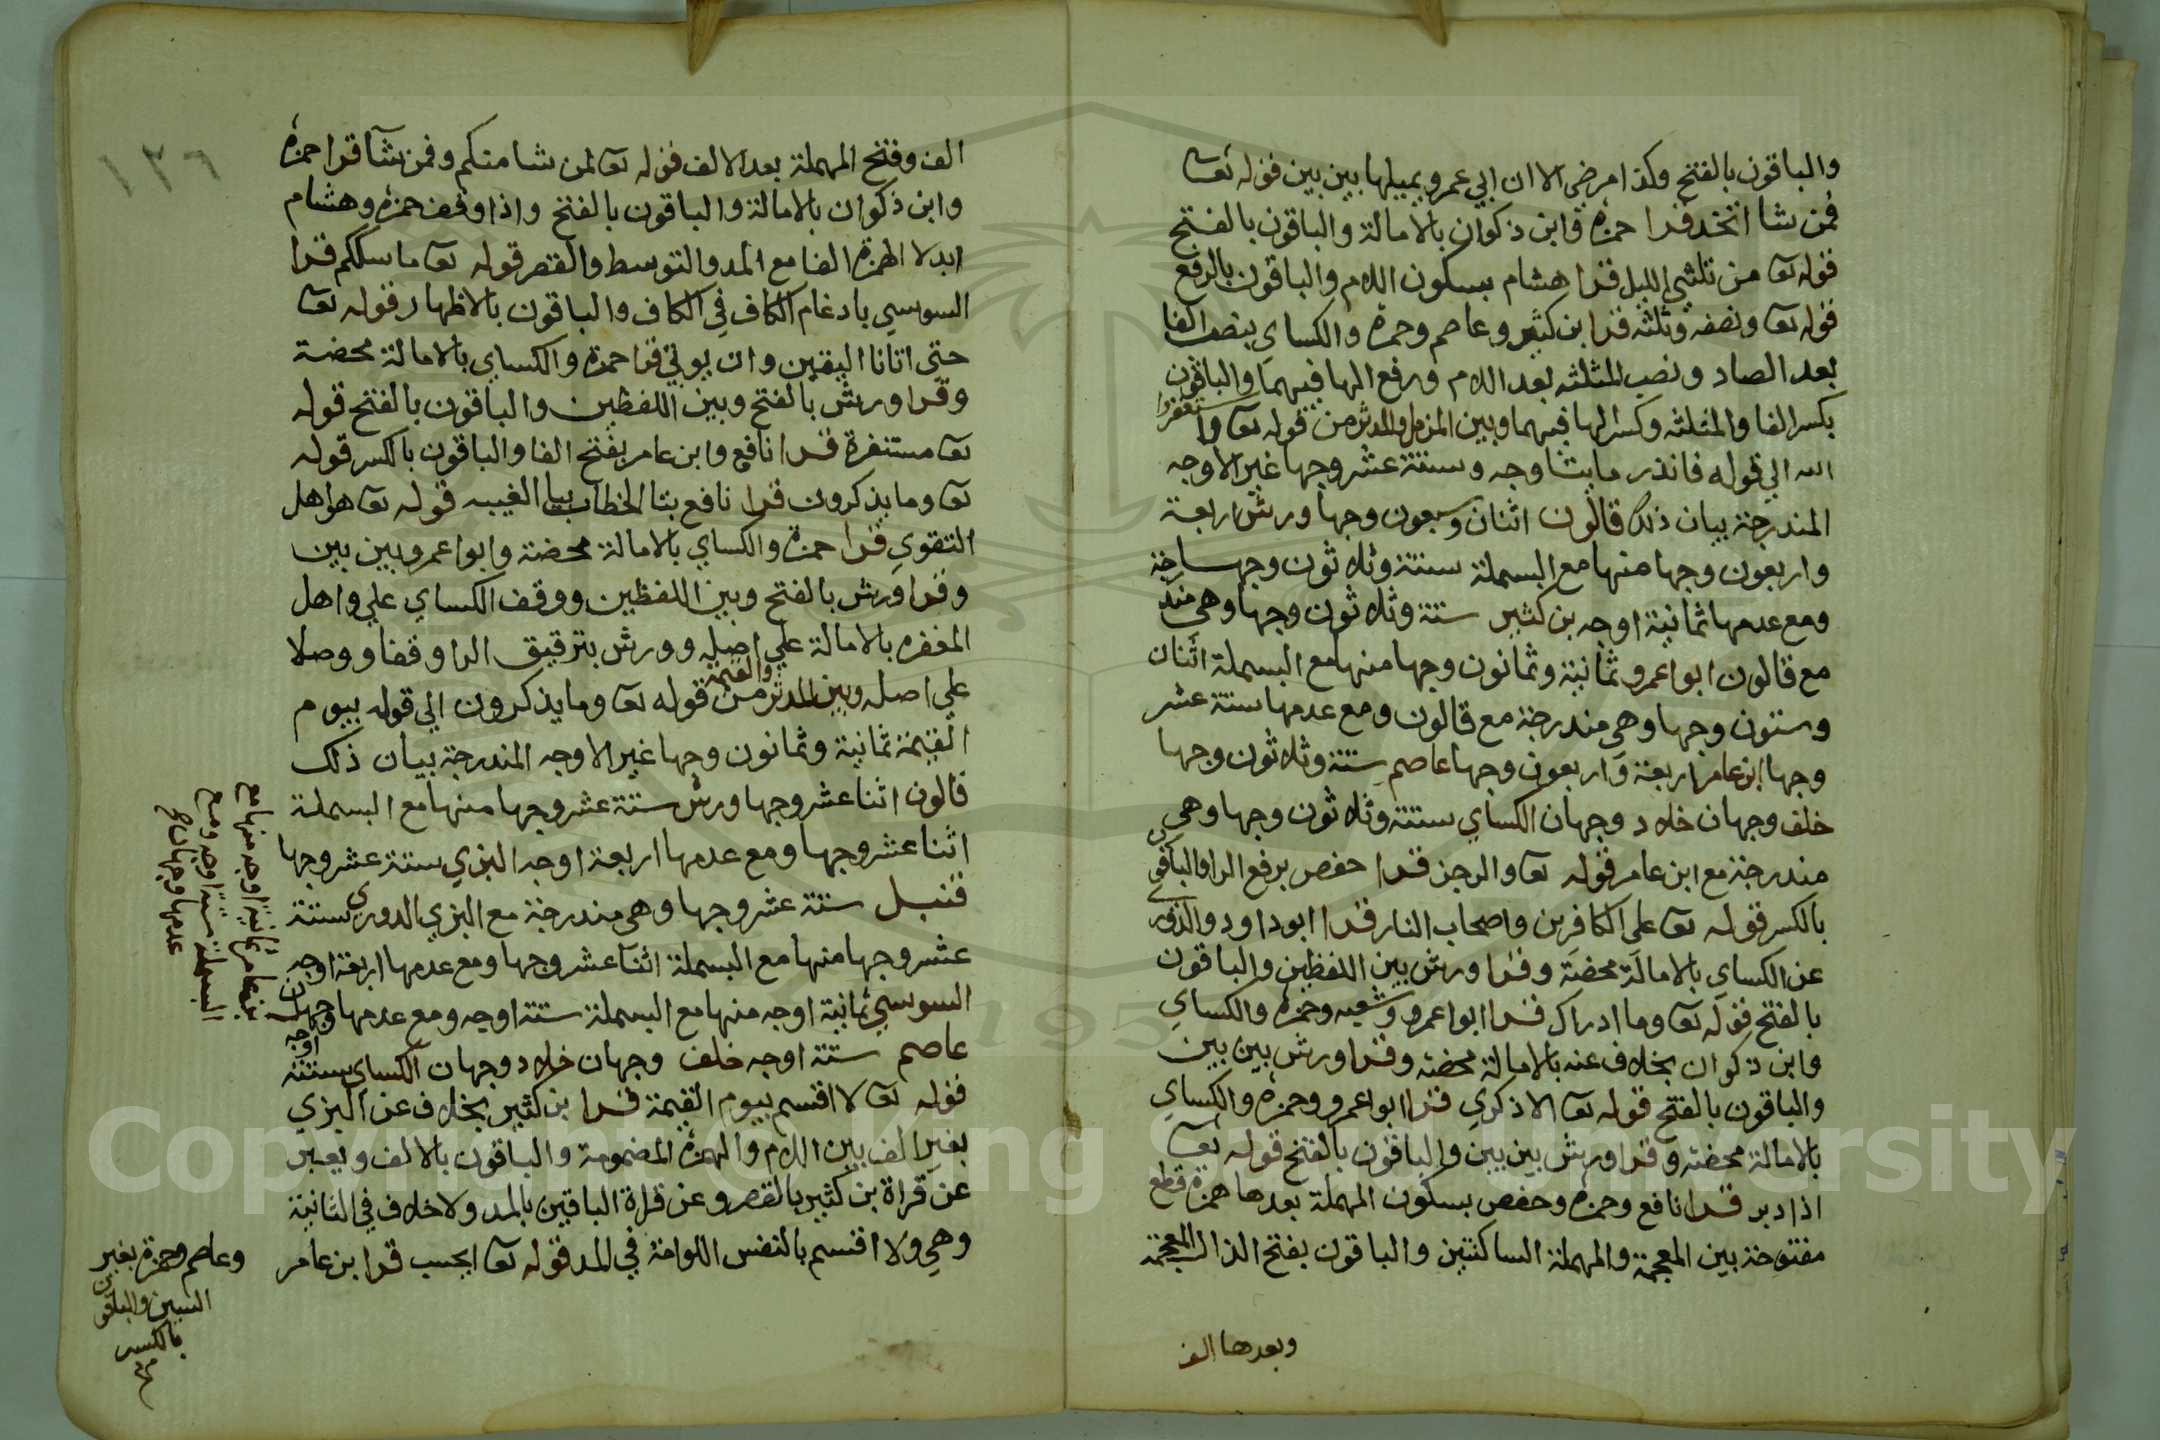 والباقون بالفتح وكذا مرضي الا ان ابي عمرو يميلها بين بين قوله تعا
فمن شا اتخذ قرا حمزة وابن ذكوان بالامالة والباقون بالفتح
قوله تعا من ثلثي الليل قرا هشام بسكون اللام والباقون بالرفع
قوله تعا ونصفه وثلثه قرا بن كثير وعاصم وحمزة والكساي بنصب الفا
بعد الصاد ونصب المثلثه بعد اللام ورفع الها فيهما والباقون
بكسر الفا والمثلثه وكسر الها فيهما وبين المزمل والمدثر من قوله تعا واستغفروا
الله الي قوله فانذر مايتا وجه وستة عشر وجها غير الاوجه
المندرجة بيان ذلك قالون اثنان وسبعون وجها ورش اربعة
واربعون وجها منها مع البسملة ستة وثلاثون وجها
ومع عدمها ثمانية اوجه بن كثير ستة وثلاثون وجها وهي مندرجة
مع قالون ابوا عمرو ثمانية وثمانون وجها منها مع البسملة اثنان
وستون وجها وهي مندرجة مع قالون ومع عدمها ستة عشر
وجها ابن عامر اربعة واربعون وجها عاصم ستة وثلاثون وجها
خلف وجهان خلاد وجهان الكساي ستة وثلاثون وجها وهي
مندرجة مع ابن عامر قوله تعا والرجز قرا حفص برفع الرا والباقون
بالكسر قوله تعا علي الكافرين واصحاب النار قرا ابوداود والدوري
عن الكساي بالامالة محضة وقرا ورش بين اللفظين والباقون
بالفتح قوله تعا وما ادراك قرا ابوا عمرو وشعبه وحمزة والكساي
وابن ذكوان بخلاف عنه بالامالة محضه وقرا ورش بين بين
والباقون بالفتح قوله تعا الا ذكري قرا ابوا عمرو وحمزة والكساي
بالامالة محضه وقرا ورش بين بين والباقون بالفتح قوله تعا
اذا دبر قرا نافع وحمزة وحفص بسكون المهملة بعدها همزة قطع
مفتوحة بين المعجمة والمهملة الساكنتين والباقون بفتح الذال المعجمة
وبعدها الف
١٢٦
الف وفتح المهملة بعد الالف قوله تعا لمن شا منكم وفمن شآ قرا حمزة
وابن ذكوان بالامالة والباقون بالفتح واذا وقف حمزة وهشام
ابدلا الهمزة الفا مع المد والتوسط والقصر قوله تعا ما سلككم قرا
السوسي بادغام الكاف في الكاف والباقون بالاظهار قوله تعا
حتي اتانا اليقين وان يوتي قرا حمزة والكساي بالامالة محضة
وقرا ورش بالفتح وبين اللفظين والباقون بالفتح قوله
تعا مستنفرة قرا نافع وابن عامر بفتح الفا والباقون بالكسر قوله
تعا وما يذكرون قرا نافع بتا الخطاب بيا الغيبه قوله تعا هو اهل
التقوي قرا حمزة والكساي بالامالة محضة وابوا عمرو بين بين
وقرا ورش بالفتح وبين اللفظين ووقف الكساي علي واهل
المغفره بالامالة علي اصله وورش بترقيق الرا وقفا ووصلا
علي اصله وبين المدثر والقيمة من قوله تعا وما يذكرون الي قوله بيوم
القيمة ثمانية وثمانون وجها غير الاوجه المندرجة بيان ذلك
قالون اثنا عشر وجها ورش ستة عشر وجها منها مع البسملة
اثنا عشر وجها ومع عدمها اربعة اوجه البزي ستة عشر وجها
قنبل ستة عشر وجها وهي مندرجة مع البزي الدوري ستة
عشر وجها منها مع البسملة اثنا عشر وجها ومع عدمها اربعة اوجه
السوسي ثمانية اوجه منها مع البسملة ستة اوجه ومع عدمها وجهان
عاصم ستة اوجه خلف وجهان خلاد وجهان الكساي ستة اوجه
قوله تعا لا اقسم بيوم القيمة قرا بن كثير بخلاف عن البزي
بغير الف بين اللام والهمزة المضمومة والباقون بالالف ويعبر
عن قراة بن كثير بالقصر وعن قراة الباقين بالمد ولا خلاف في الثانية
وهي ولا اقسم بالنفس اللوامة في المد قوله تعا ايحسب قرا بن عامر
بن عامر ثمانية اوجه منها مع
البسملة ستة اوجه ومع
عدمها وجهان صح
وعاصم وحمزة بغير
السين والباقون
بالكسر
Copyright © King Saud University
1957